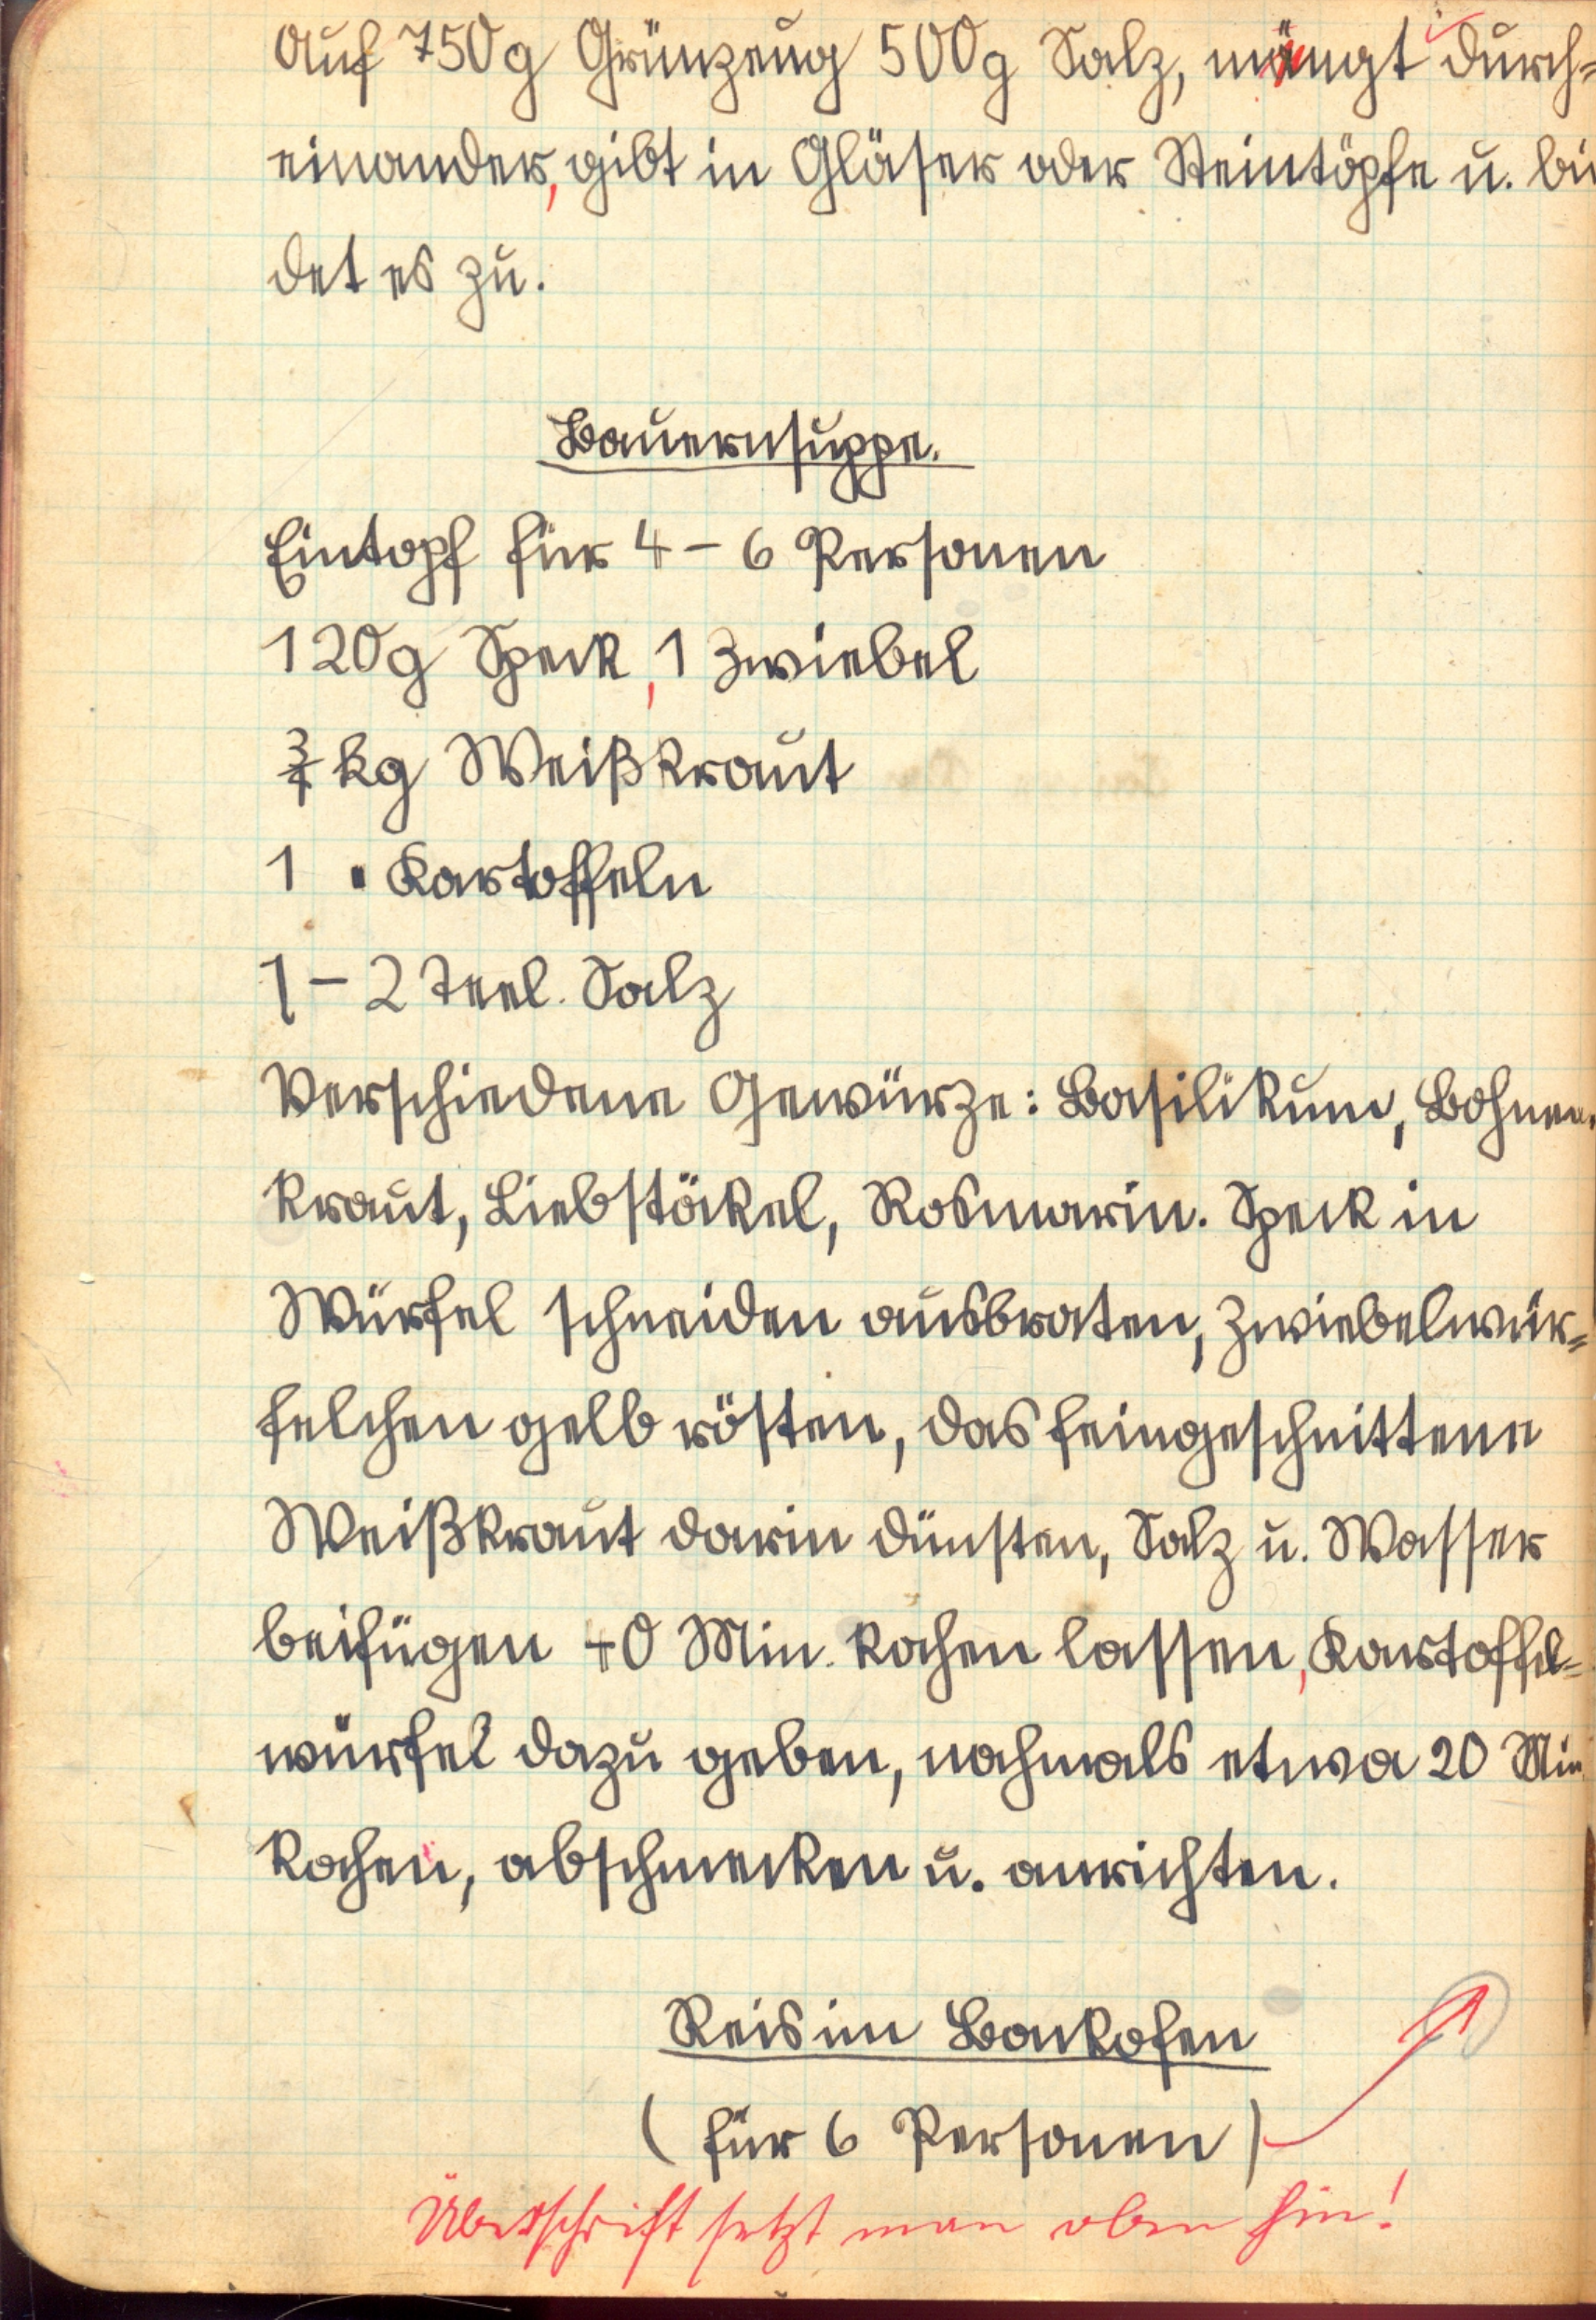 Auf 750g Grünzeug 500g Salz, mengt durch=
einander, gibt in Gläser oder Steintöpfe u. bin
det es zu.
Bauernsuppe.
Eintopf für 4 – 6 Personen
120g Speck, 1 Zwiebel
¾ kg Weißkraut
1 " Kartoffeln
1 – 2 Teel. Salz
Verschiedene Gewürze: Basilikum, Bohnen
kraut, Liebstöckel, Rosmarin. Speck in
Würfel schneiden ausbraten, Zwiebelwür=
felchen gelb rösten, das feingeschnittene
Weißkraut darin dünsten, Salz u. Wasser
beifügen 40 Min. kochen lassen, Kartoffel=
würfel dazu geben, nochmals etwa 20 Min
kochen, abschmecken u. anrichten.
Reis im Backofen
( für 6 Personen )
Überschrift setzt man oben hin!